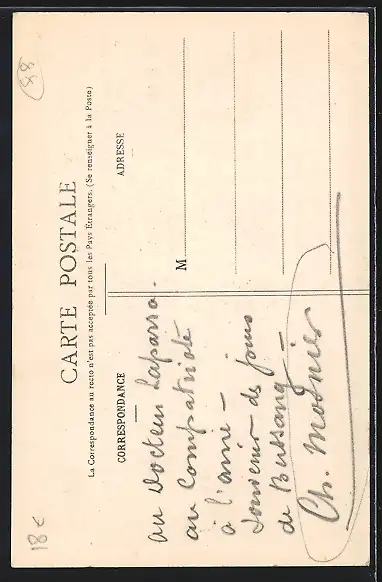 CARTE POSTALE
La Correspondance au recto n'est pas acceptée par tous les Pays Etrangers. (Se renseigner à la Poste)
CORRESPONDANCE
ADRESSE
M
au Docteur Laparra.
au Compatriote
à l'ami —
Souvenir des jours
de Bussang —
Ch. Mognier
88
18 €